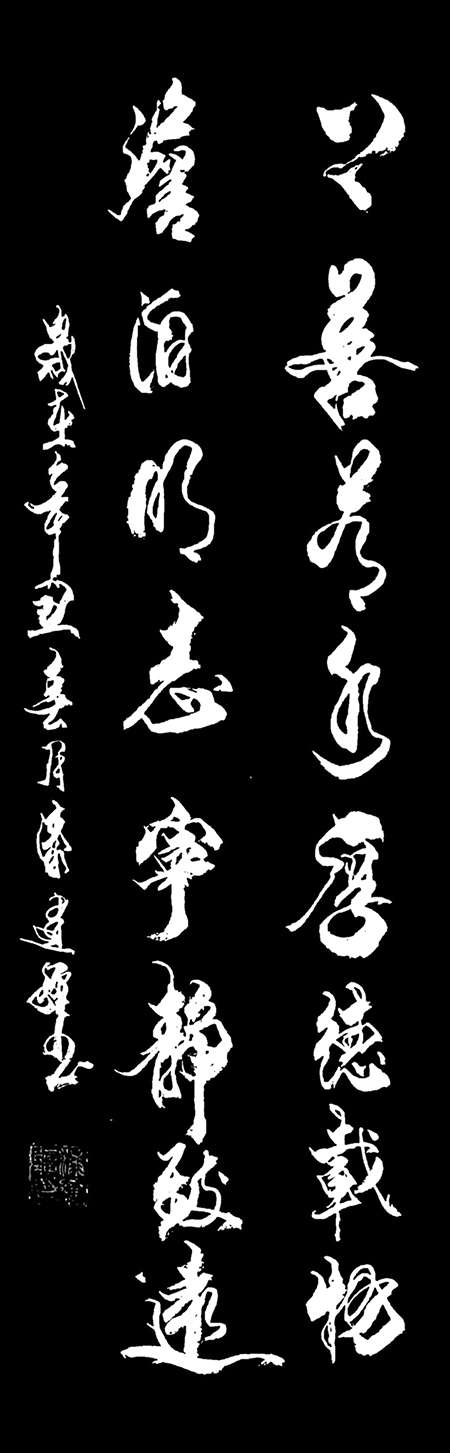 上善若水厚德载物
澹泊明志宁静致远
岁在辛丑春月涂建辉书